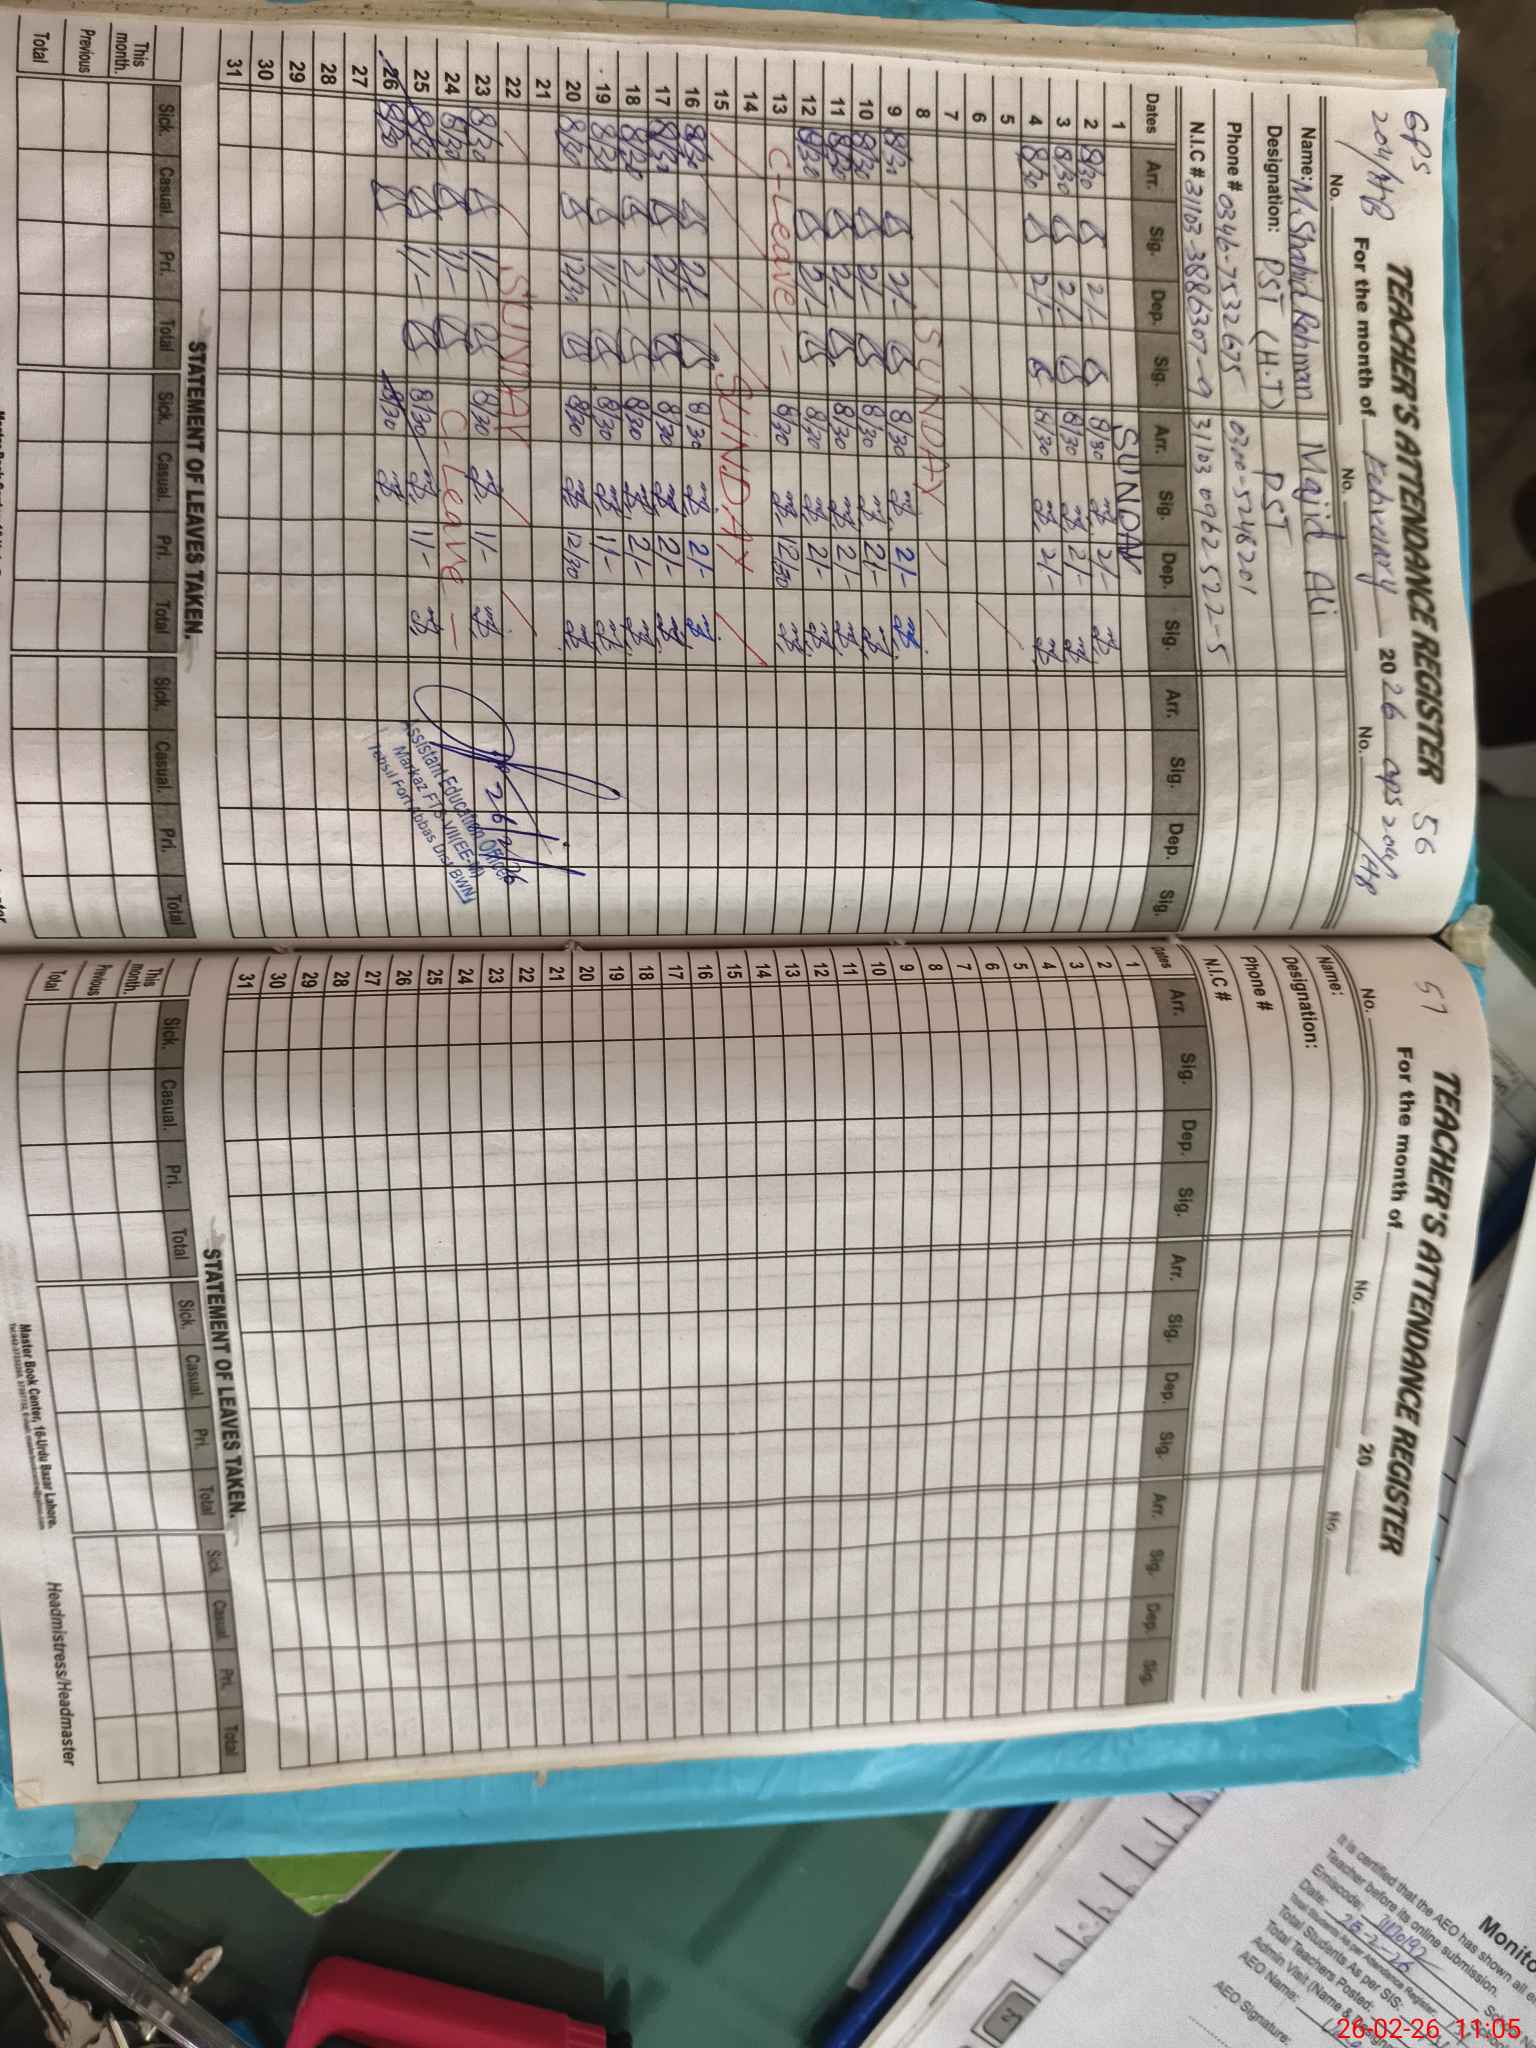 GPS
204/HB
TEACHER'S ATTENDANCE REGISTER 56
For the month of February 2026 GPS 204/HB
No. No. No.
Name: M. Shahid Rehman Majid Ali
Designation: PST (H.T) PST
Phone # 0346-7532675 0300-5248201
N.I.C # 31103-3886307-9 31103 0962522-5
Dates Arr. Sig. Dep. Sig. Arr. Sig. Dep. Sig. Arr. Sig. Dep. Sig.
1 SUNDAY
2 8/30 2/- 8/30 2/-
3 8/30 2/- 8/30 2/-
4 8/30 2/- 8/30 2/-
5
6
7
8 SUNDAY
9 8/30 2/- 8/30 2/-
10 8/30 2/- 8/30 2/-
11 8/30 2/- 8/30 2/-
12 8/30 2/- 8/30 2/-
13 C-Leave - 8/30 12/30
14
15 SUNDAY
16 8/30 2/- 8/30 2/-
17 8/30 2/- 8/30 2/-
18 8/30 2/- 8/30 2/-
19 8/30 1/- 8/30 1/-
20 8/30 12/30 8/30 12/30
21
22 SUNDAY
23 8/30 1/- 8/30 1/-
24 8/30 1/- C-Leave -
25 8/30 1/- 8/30 1/-
26 8/30 8/30
27
28
29
30
31
26/2/26
Assistant Education Officer
Markaz FTS VII(EE-M)
Tehsil Fort Abbas Dist BWN
STATEMENT OF LEAVES TAKEN.
Sick. Casual. Pri. Total Sick. Casual. Pri. Total Sick. Casual. Pri. Total
This month.
Previous
Total
57
TEACHER'S ATTENDANCE REGISTER
For the month of 20
No. No. No.
Name:
Designation:
Phone #
N.I.C #
Dates Arr. Sig. Dep. Sig. Arr. Sig. Dep. Sig. Arr. Sig. Dep. Sig.
1
2
3
4
5
6
7
8
9
10
11
12
13
14
15
16
17
18
19
20
21
22
23
24
25
26
27
28
29
30
31
STATEMENT OF LEAVES TAKEN.
Sick. Casual. Pri. Total Sick. Casual. Pri. Total Sick Casual Pri. Total
This month.
Previous
Total
Master Book Center, 16-Urdu Bazar Lahore.
Headmistress/Headmaster
Monito
It is certified that the AEO has shown all
Teacher before its online submission.
Emiscode:
Date:
Total Students As per Attendance Register:
Total Students As per SIS:
Total Teachers Posted:
Admin Visit (Name &
AEO Name:
AEO Signature:
26-02-26 11:05